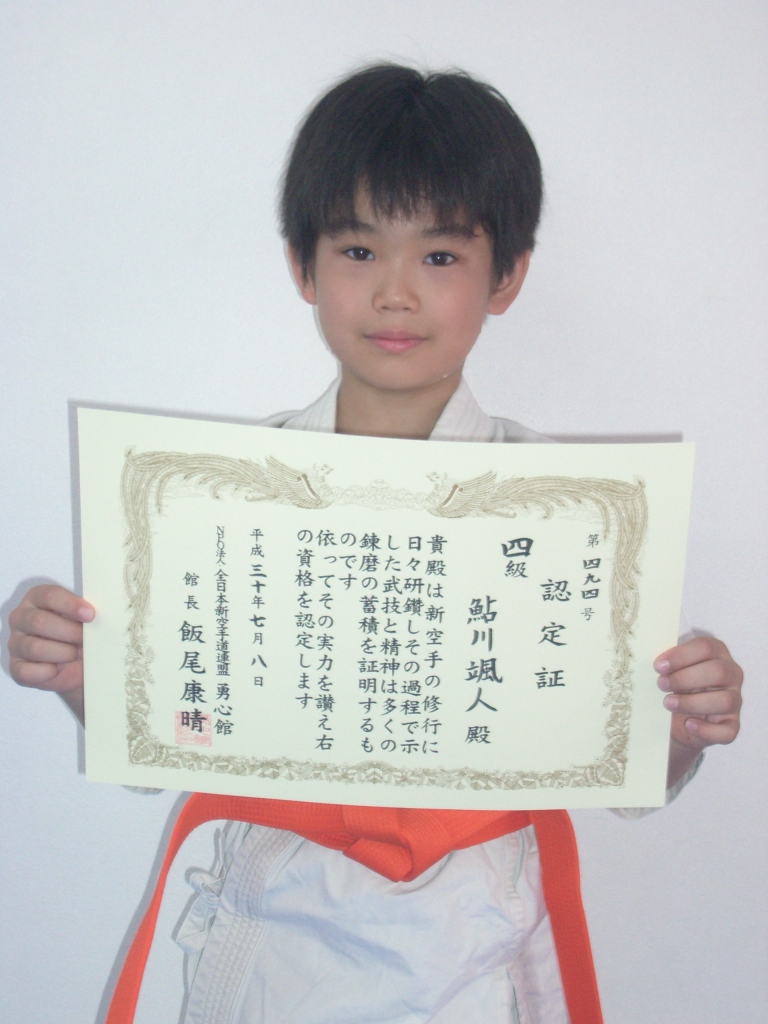 第四九四号
認定証
四級
鮎川颯人殿
貴殿は新空手の修行に
日々研鑽しその過程で示
した武技と精神は多くの
錬磨の蓄積を証明するも
のです
依ってその実力を讃え右
の資格を認定します
平成三十年七月八日
NPO法人全日本新空手道連盟 勇心館
館長 飯尾康晴